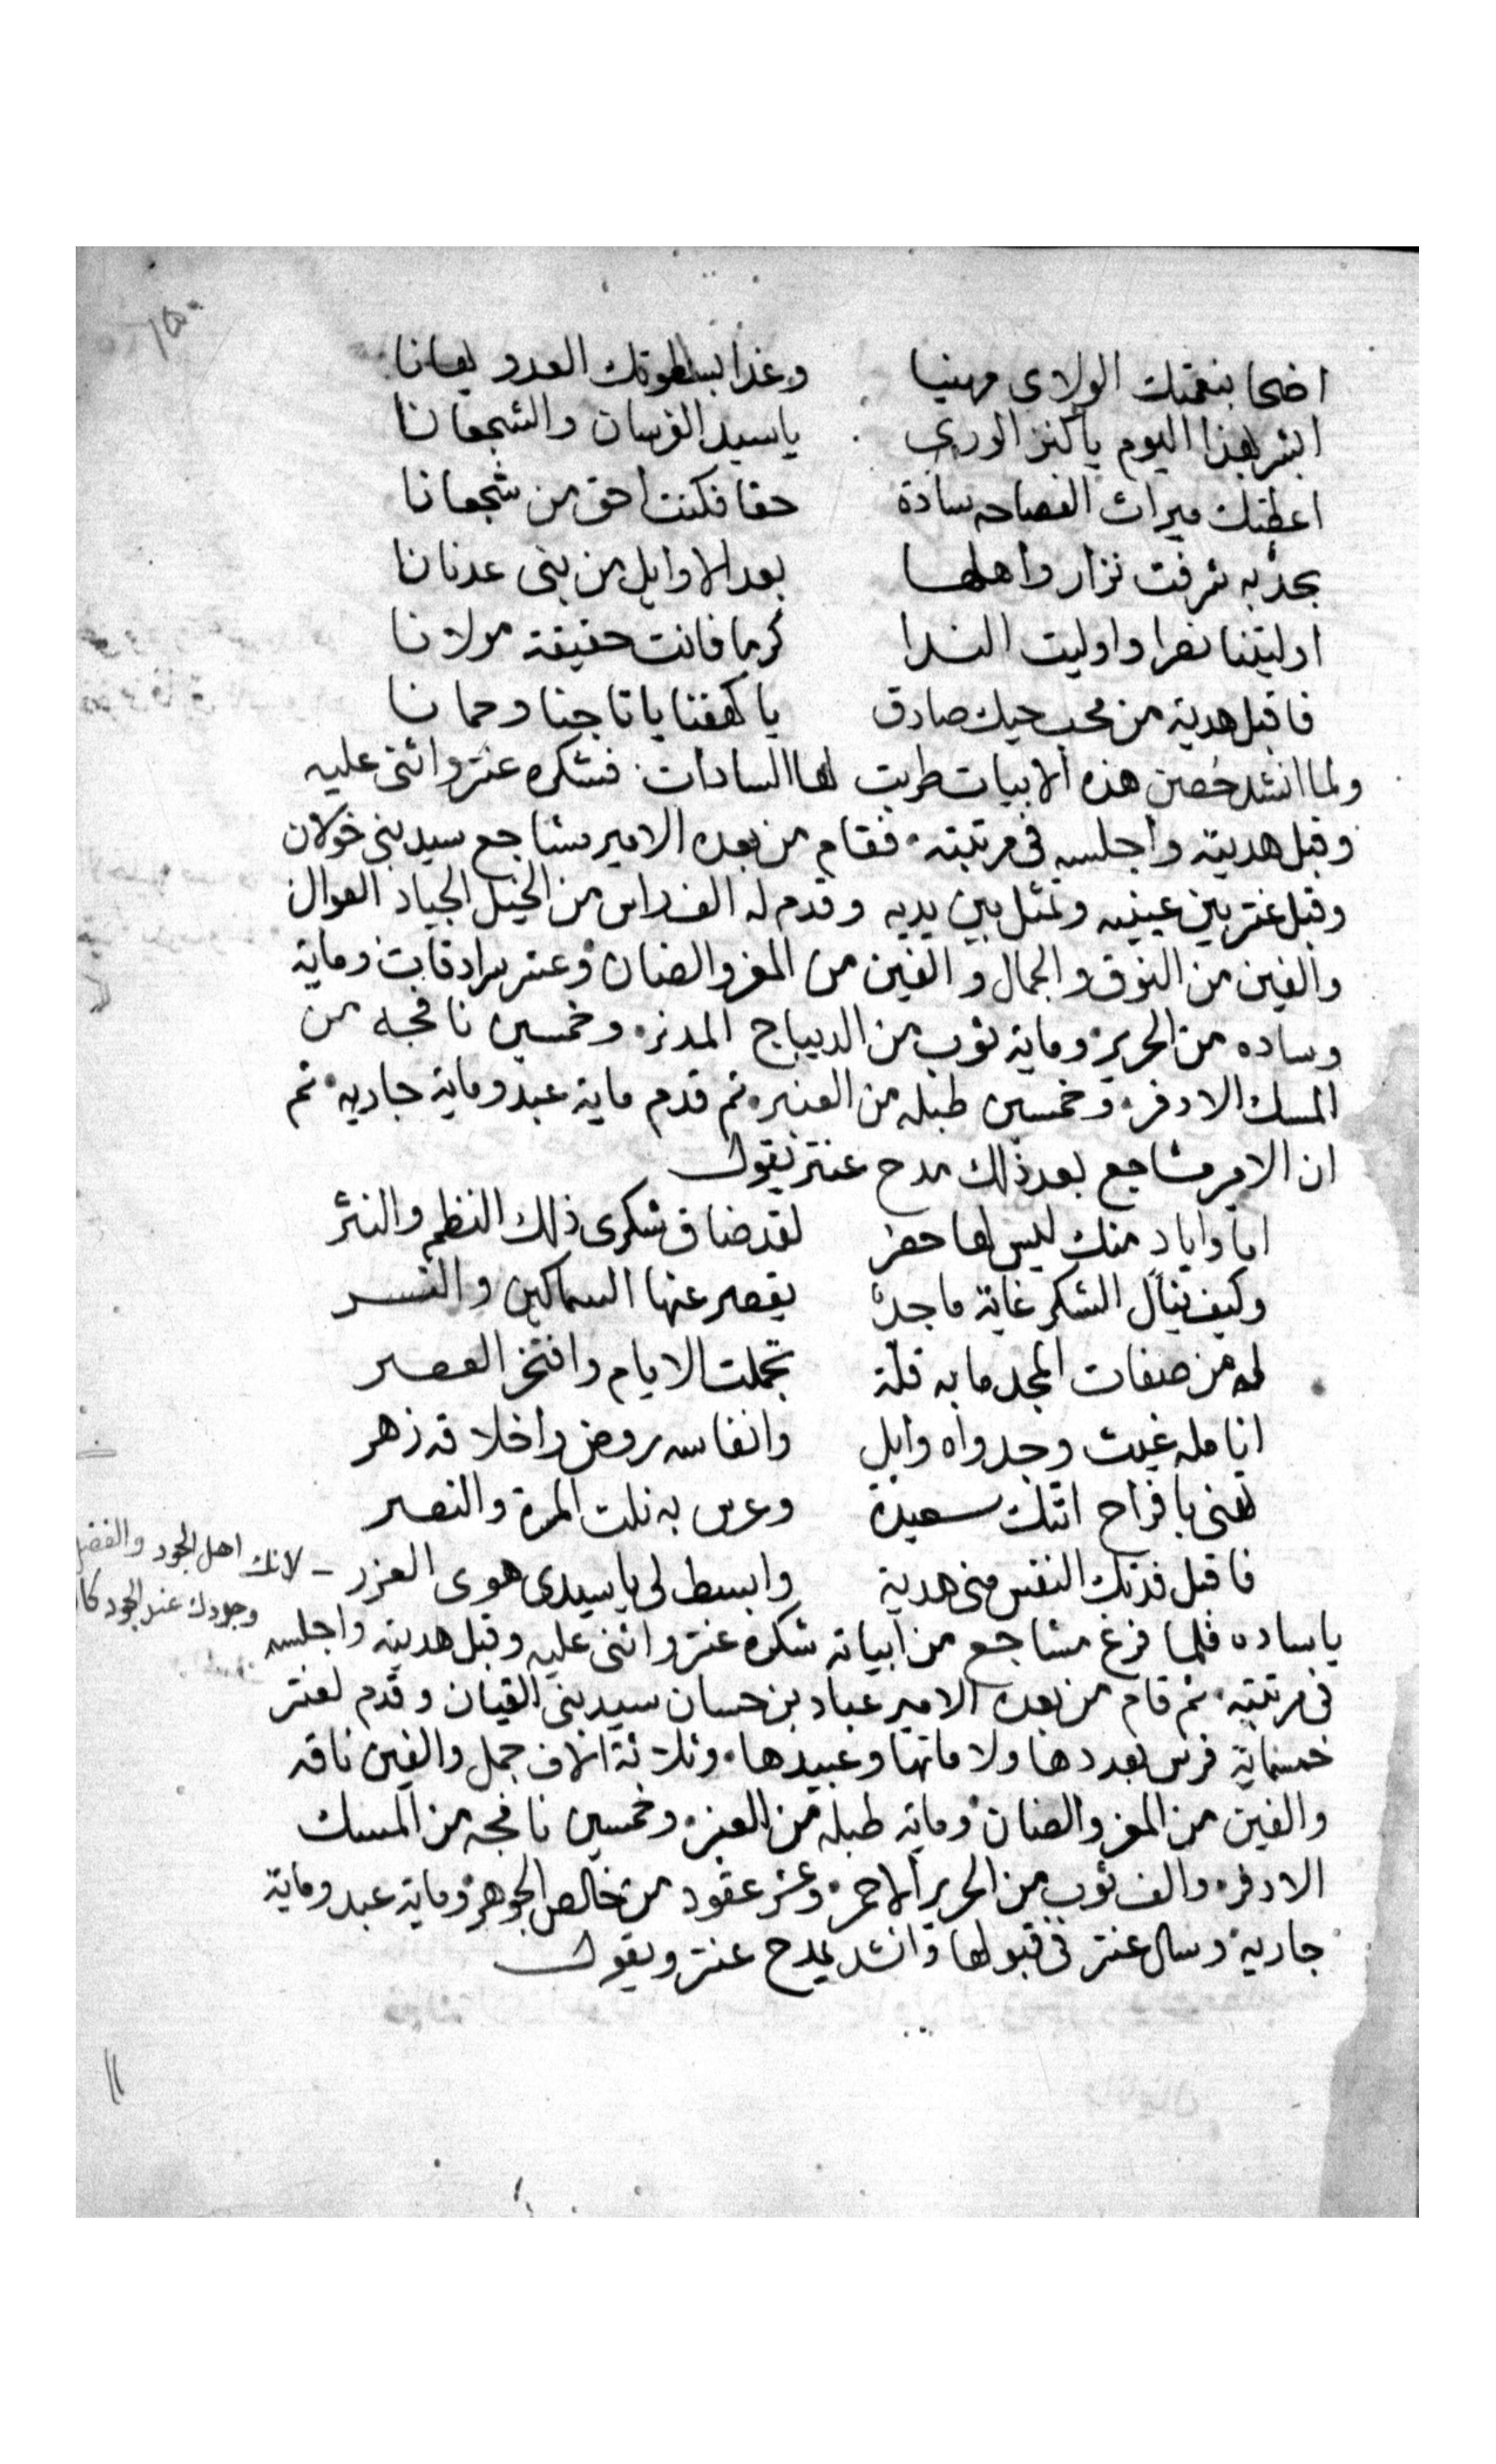 ١٥٠
اضحا بنعمتك الولاى مهنيا وغدا بسطوتك العدو يعانا
ابشر بهذا اليوم يا كنز الورى يا سيد الفرسان والشجعانا
اعطتك ميراث الفصاحه سادة حقا فكنت احق من شجعانا
بجد به شرفت نزار واهلها بعد الاوايل من بنى عدنانا
اوليتنا نصرا واوليت الندا كرما فانت حقيقة مولانا
فاقبل هدية من محب حيك صادق يا كهفنا يا تاجنا وحمانا
ولما انشد حصين هذه الابيات طربت لها السادات فشكره عنتر واثنى عليه
وقبل هديته واجلسه فى مرتبته فقام من بعده الامير مشاجع سيد بنى خولان
وقبل عنتر بين عينيه وتمثل بين يديه وقدم له الف راس من الخيل الجياد العوال
والفين من النوق والجمال والفين من المعز والضان وعشر سرادقات وماية
وساده من الحرير وماية ثوب من الديباج المدنر وخمسين نافجه من
المسك الادفر وخمسين طبله من العنبر ثم قدم ماية عبد وماية جاريه ثم
ان الامير مشاجع بعد ذلك مدح عنتر يقول
اما واياد منك ليس لها حصر لقد ضاق شكرى ذلك النظم والنثر
وكيف ينال الشكر غاية ماجد يقصر عنها السماكين والنسر
له من صفات المجد ما به قلة تجملت الايام وافتخر العصر
انامله غيث وجدواه وابل وانفاسه روض واخلاقه زهر
تهنى بافراح اتتك سعيدة وعرس به نلت المسرة والنصر
فاقبل فدتك النفس منى هدية وابسط لى يا سيدى هوى العزر - لانك اهل الجود والفضل
وجودك عند الجود
يا ساده فلما فرغ مشاجع من ابياته شكره عنتر واثنى عليه وقبل هديته واجلسه
فى مرتبته ثم قام من بعده الامير عباد بن حسان سيد بنى القيان وقدم لعنتر
خمسماية فرس بعددها ولاماتها وعبيدها وثلاثة الاف جمل والفين ناقه
والفين من المعز والضان وماية طبلة من العنبر وخمسين نافجه من المسك
الادفر والف ثوب من الحرير الاحمر وعشر عقود من خالص الجوهر وماية عبد وماية
جارية وسال عنتر فى قبولها وانشد يمدح عنتر ويقول